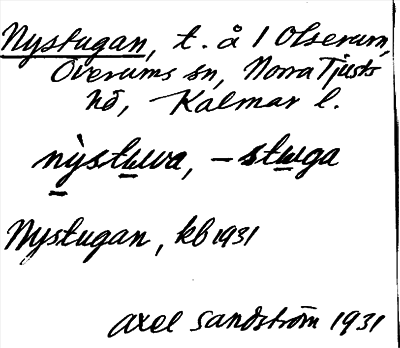 Nystugan, t. å 1 Olserum,
Överums sn, Norra Tjusts
hd, Kalmar l.
nỳstuva, -stuga
Nystugan, kb 1931
Axel Sandström 1931